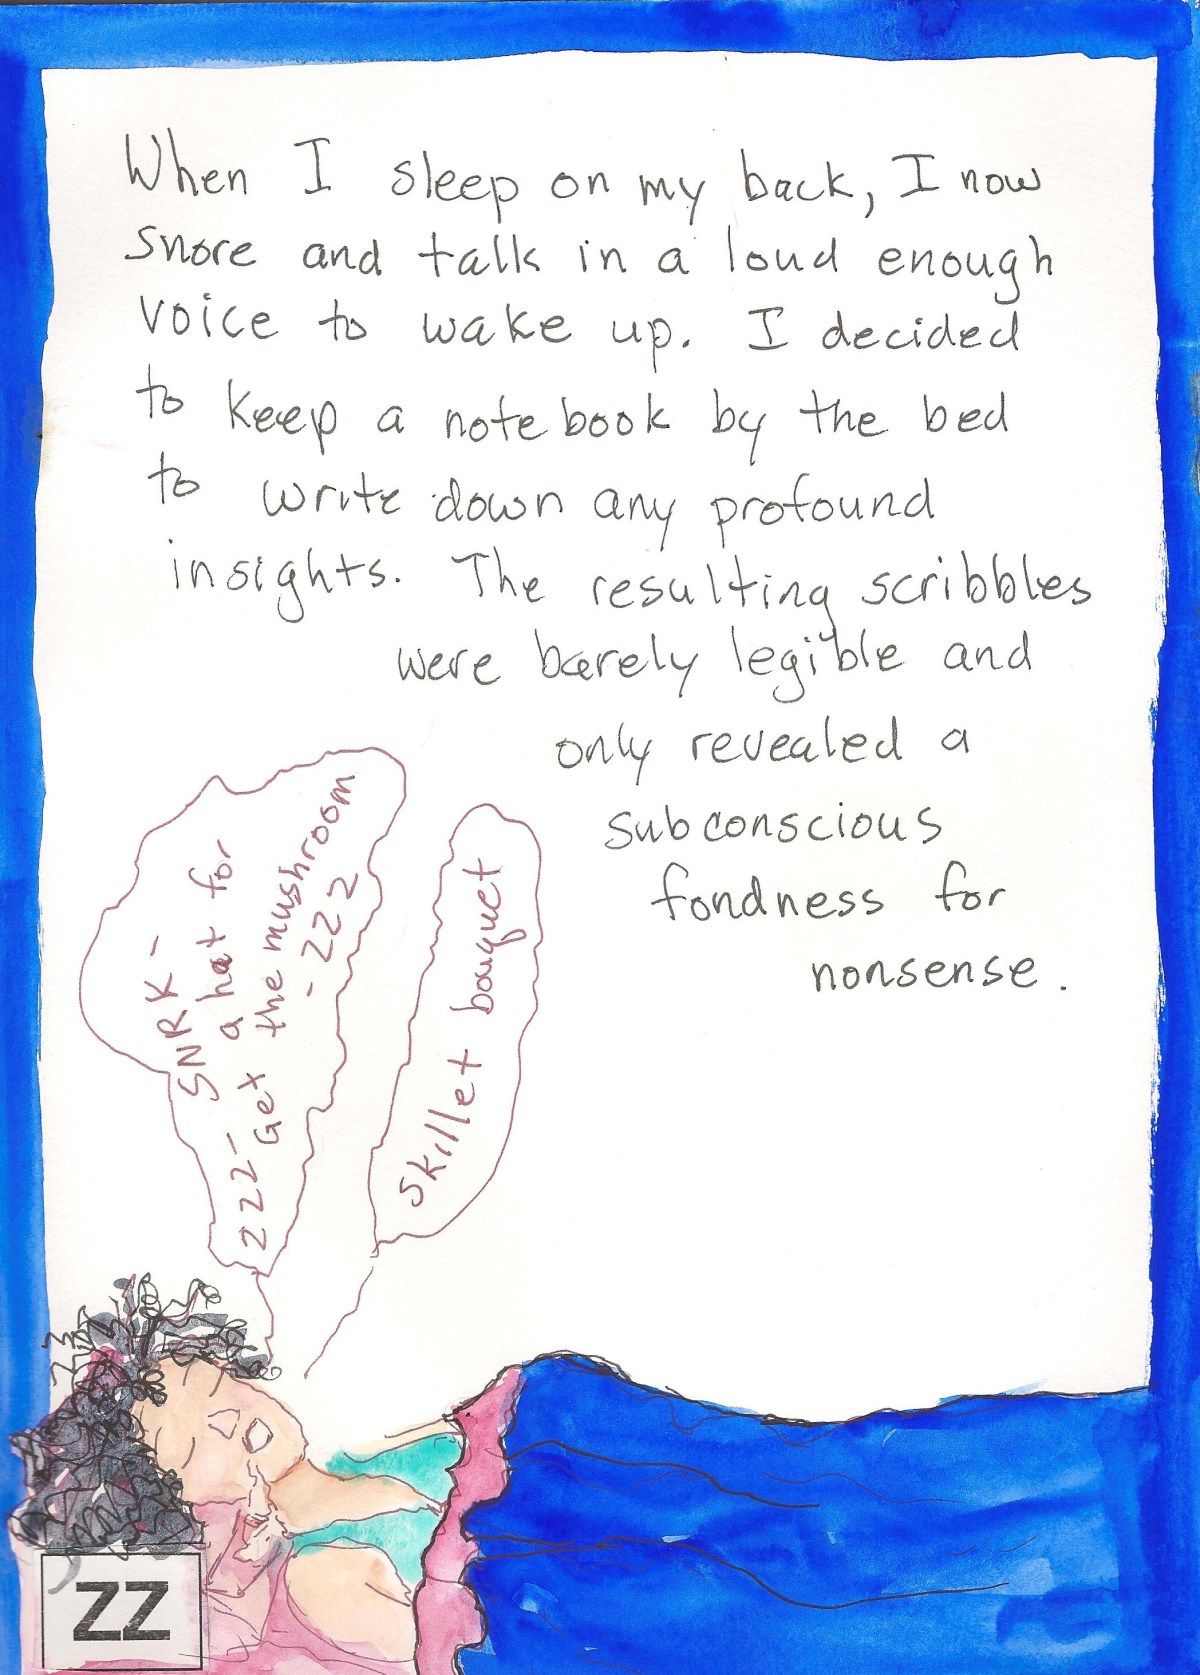 When I sleep on my back, I now
snore and talk in a loud enough
voice to wake up. I decided
to keep a notebook by the bed
to write down any profound
insights. The resulting scribbles
were barely legible and
only revealed a
subconscious
fondness for
nonsense.
SNRK-
zzz- a hat for
Get the mushroom
- zzz
Skillet bouquet
ZZ